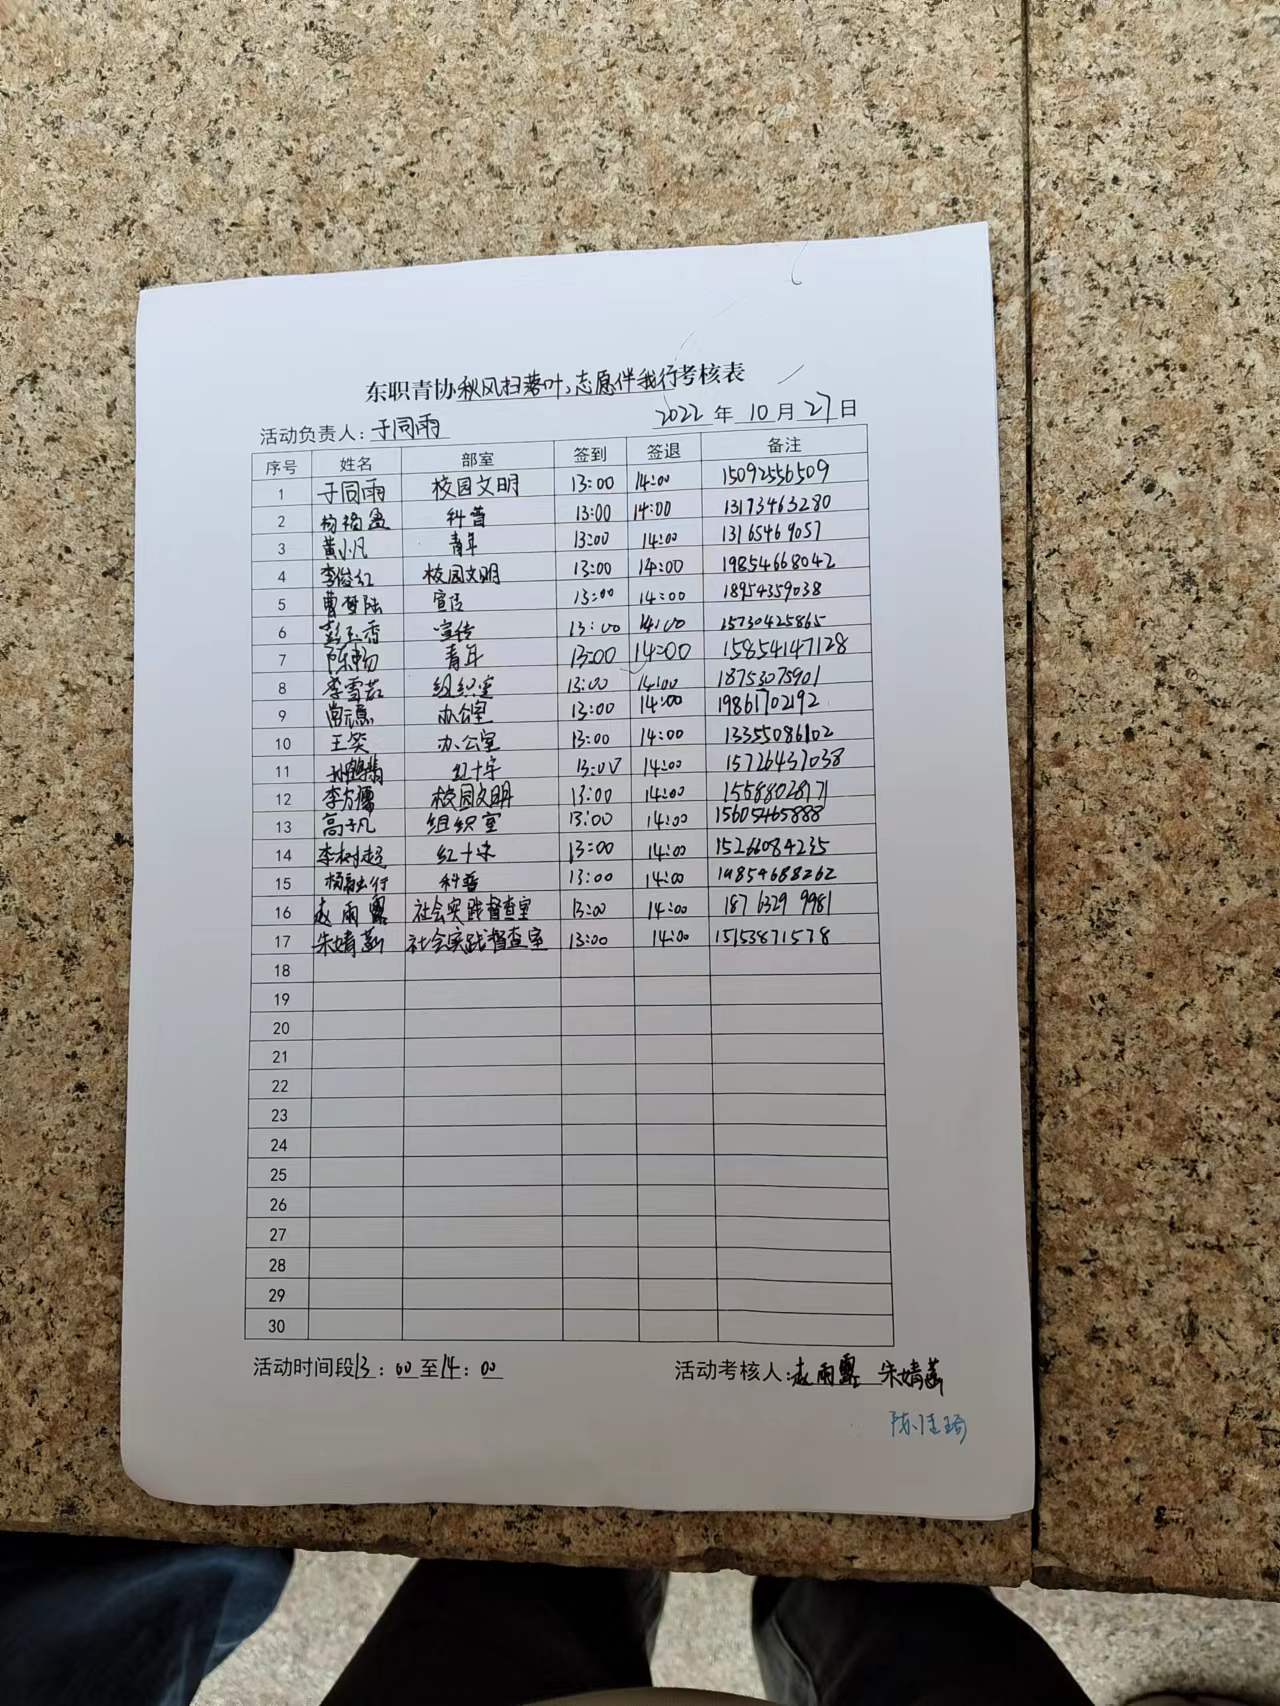 东职青协秋风扫落叶,志愿伴我行考核表
活动负责人:于同雨 2022年10月27日
序号 姓名 部室 签到 签退 备注
1 于同雨 校园文明 13:00 14:00 15092556509
2 科普 13:00 14:00 13173463280
3 黄小凡 青年 13:00 14:00 13165469057
4 李俊红 校园文明 13:00 14:00 19854668042
5 曹梦陆 宣传 13:00 14:00 18954359038
6 彭玉香 宣传 13:00 14:00 15730425865
7 陈畅 青年 13:00 14:00 15854147128
8 李雪茹 组织室 13:00 14:00 18753075901
9 办公室 13:00 14:00 19861702192
10 王笑 办公室 13:00 14:00 13355086102
11 红十字 13:00 14:00 15726437038
12 校园文明 13:00 14:00 15588028171
13 高子凡 组织室 13:00 14:00 15605465888
14 李树超 红十字 13:00 14:00 15266084235
15 科普 13:00 14:00 19854688262
16 赵雨露 社会实践督查室 13:00 14:00 187 6329 9981
17 朱婧菡 社会实践督查室 13:00 14:00 15153871578
18
19
20
21
22
23
24
25
26
27
28
29
30
活动时间段13:00至14:00 活动考核人:赵雨露 朱婧菡
陈佳琦